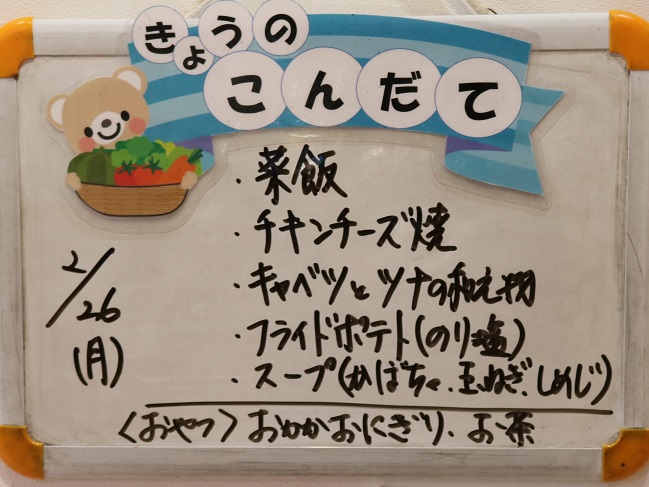 きょうの
こんだて
2/26
(月)
・菜飯
・チキンチーズ焼
・キャベツとツナの和え物
・フライドポテト(のり塩)
・スープ(かぼちゃ、玉ねぎ、しめじ)
〈おやつ〉おかかおにぎり、お茶